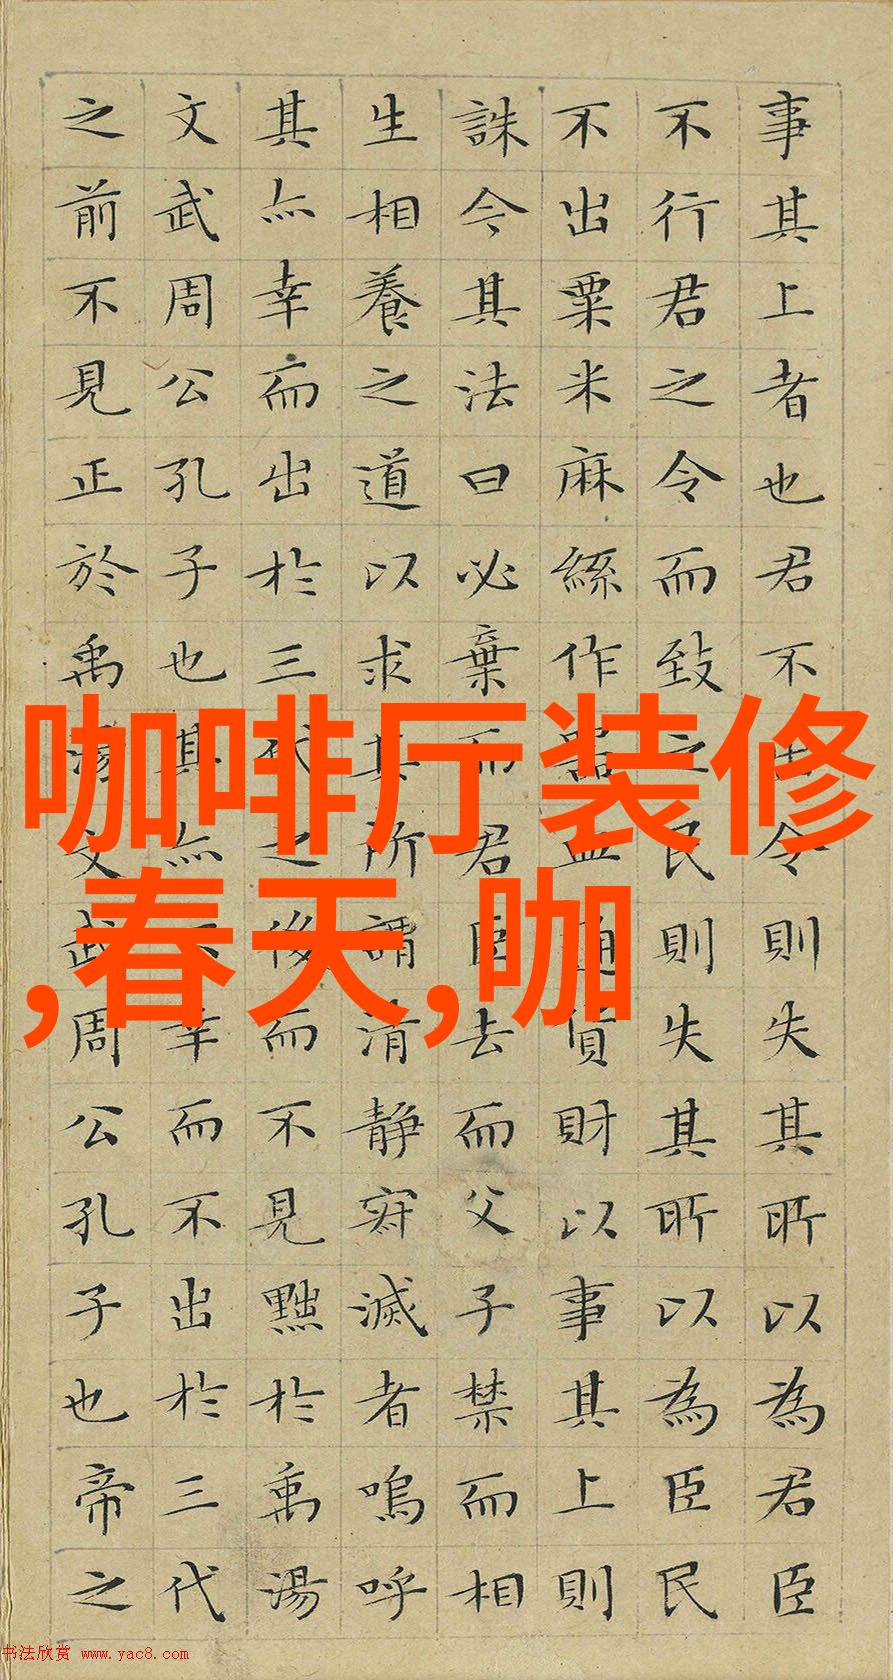 事其上者也君不出令則失其所以為君臣
不行君之令而致之民則失其所以為臣民
不出粟米麻絲作器皿通貨財以事其上則
誅今其法曰必棄而君臣去而父子禁而相
生相養之道以求其所謂清静寂滅者嗚呼
其亦幸而出於三代之後而不見黜於禹湯
文武周公孔子也其亦不幸而不出於三代
之前不見正於禹湯文武周公孔子也帝之
咖啡厅装修
,春天,咖
书法欣赏 www.yac8.com